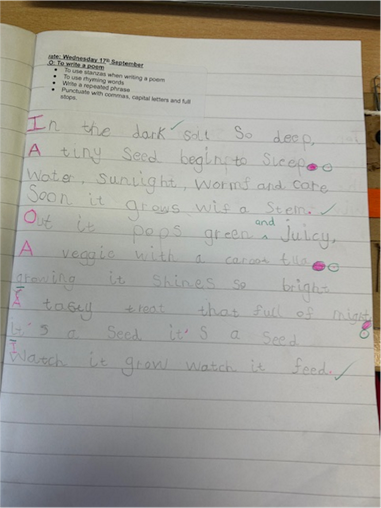 Date: Wednesday 17th September
LO: To write a poem
• To use stanzas when writing a poem
• To use rhyming words
• Write a repeated phrase
• Punctuate with commas, capital letters and full
stops.
In the dark soil so deep,
A tiny seed begin to sleep
Water, sunlight, worms and care
Soon it grows wif a stem.
Out it pops green and juicy,
A veggie with a carrot
growing it shines so bright
A tasty treat that full of might
It's a seed it's a seed
Watch it grow watch it feed.